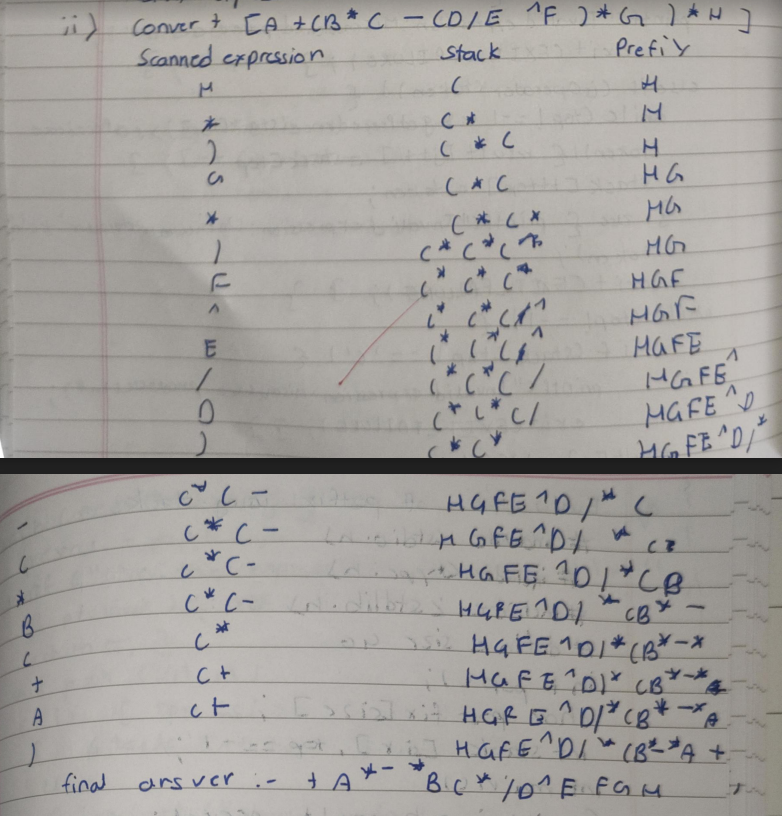 ii) Convert [A + (B * C - (D / E ^ F ) * G ) * H ]
Scanned expression Stack Prefix
H ( H
* ( * H
) ( * ( H
G ( * ( HG
* ( * ( * HG
) ( * ( * ( HG
F ( * ( * ( HGF
^ ( * ( * ( ^ HGF
E ( * ( * ( ^ HGFE
/ ( * ( * ( / HGFE^
D ( * ( * ( / HGFE^D
) ( * ( * HGFE^D/*
- ( * ( - HGFE^D/* C
( ( * ( - HGFE^D/ * C
* ( * ( - HGFE^D/*CB
B ( * ( - HGFE^D/ *CB* -
( ( * HGFE^D/*CB*-*
+ ( + HGFE^D/* CB*-*
A ( + HGFE^D/*CB*-*A
) HGFE^D/ *CB*-*A +
final answer :- + A *- *BC * /D^E FGH